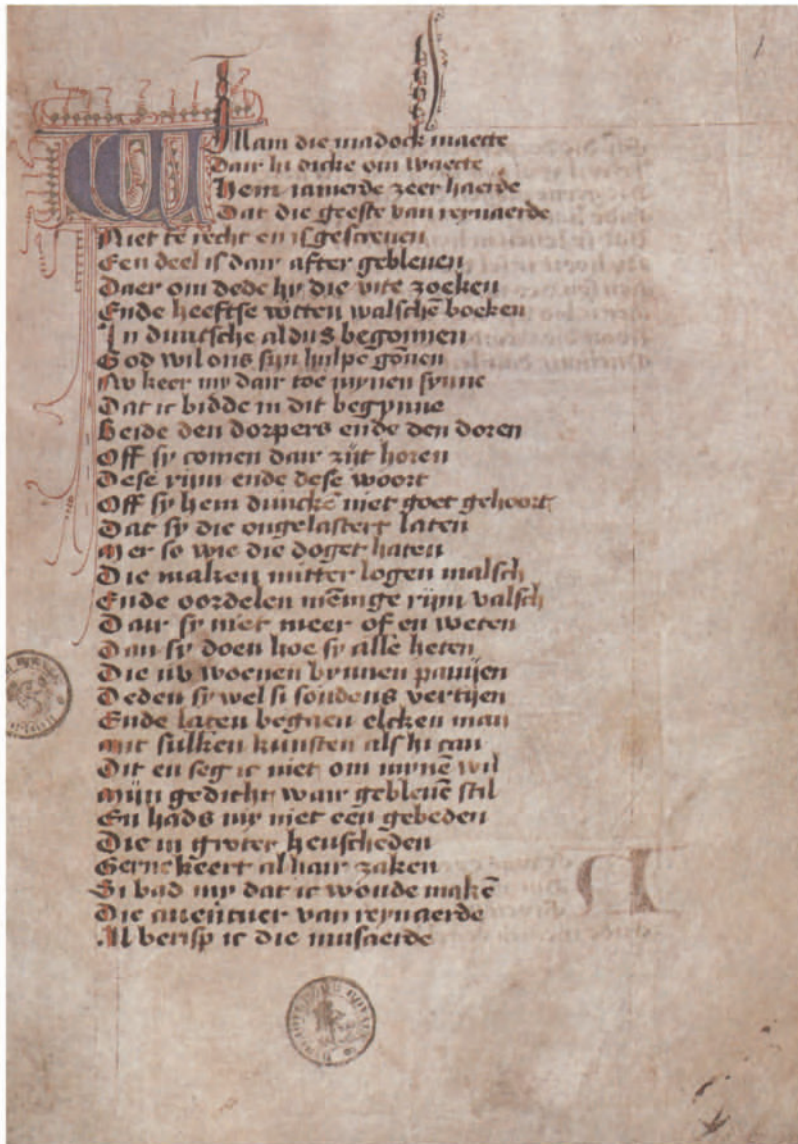 1
Willam die madock maecte
Dair hi dicke om waecte
Hem iamerde zeer haerde
Dat die geeste van reynaerde
Niet te recht en is gescreuen
Een deel is dair after gebleuen
Daer om dede hy die vite zoeken
Ende heeftse wtten walschē boeken
In duutsche aldus begonnen
God wil ons sijn hulpe gōnen
Nv keer my dair toe mynen synne
Dat ic bidde in dit begynne
Beide den dorpers ende den doren
Off sy comen dair zijt horen
Dese rijm ende dese woort
Off sy hem dunckē niet goet gehoort
Dat sy die ongelastert laten
Mer so wie die doget haten
Die maken mitter logen malsch
Ende oordelen mēnige rijm valsch
Dair sy niet meer of en weten
Dan sy doen hoe sy alle heten
Die nv woenen bynnen pauijen
Deden sy wel si soudens vertijen
Ende laten begaen elcken man
Mit sulken kunsten als hi can
Dit en seg ic niet om mynē wil
Mijn gedicht wair gebleuē stil
En hads my niet een gebeden
Die in groter heuscheden
Gerne keert al hair zaken
Si bad my dat ic woude makē
Die auentuer van reynaerde
Al berisp ic die musaerde